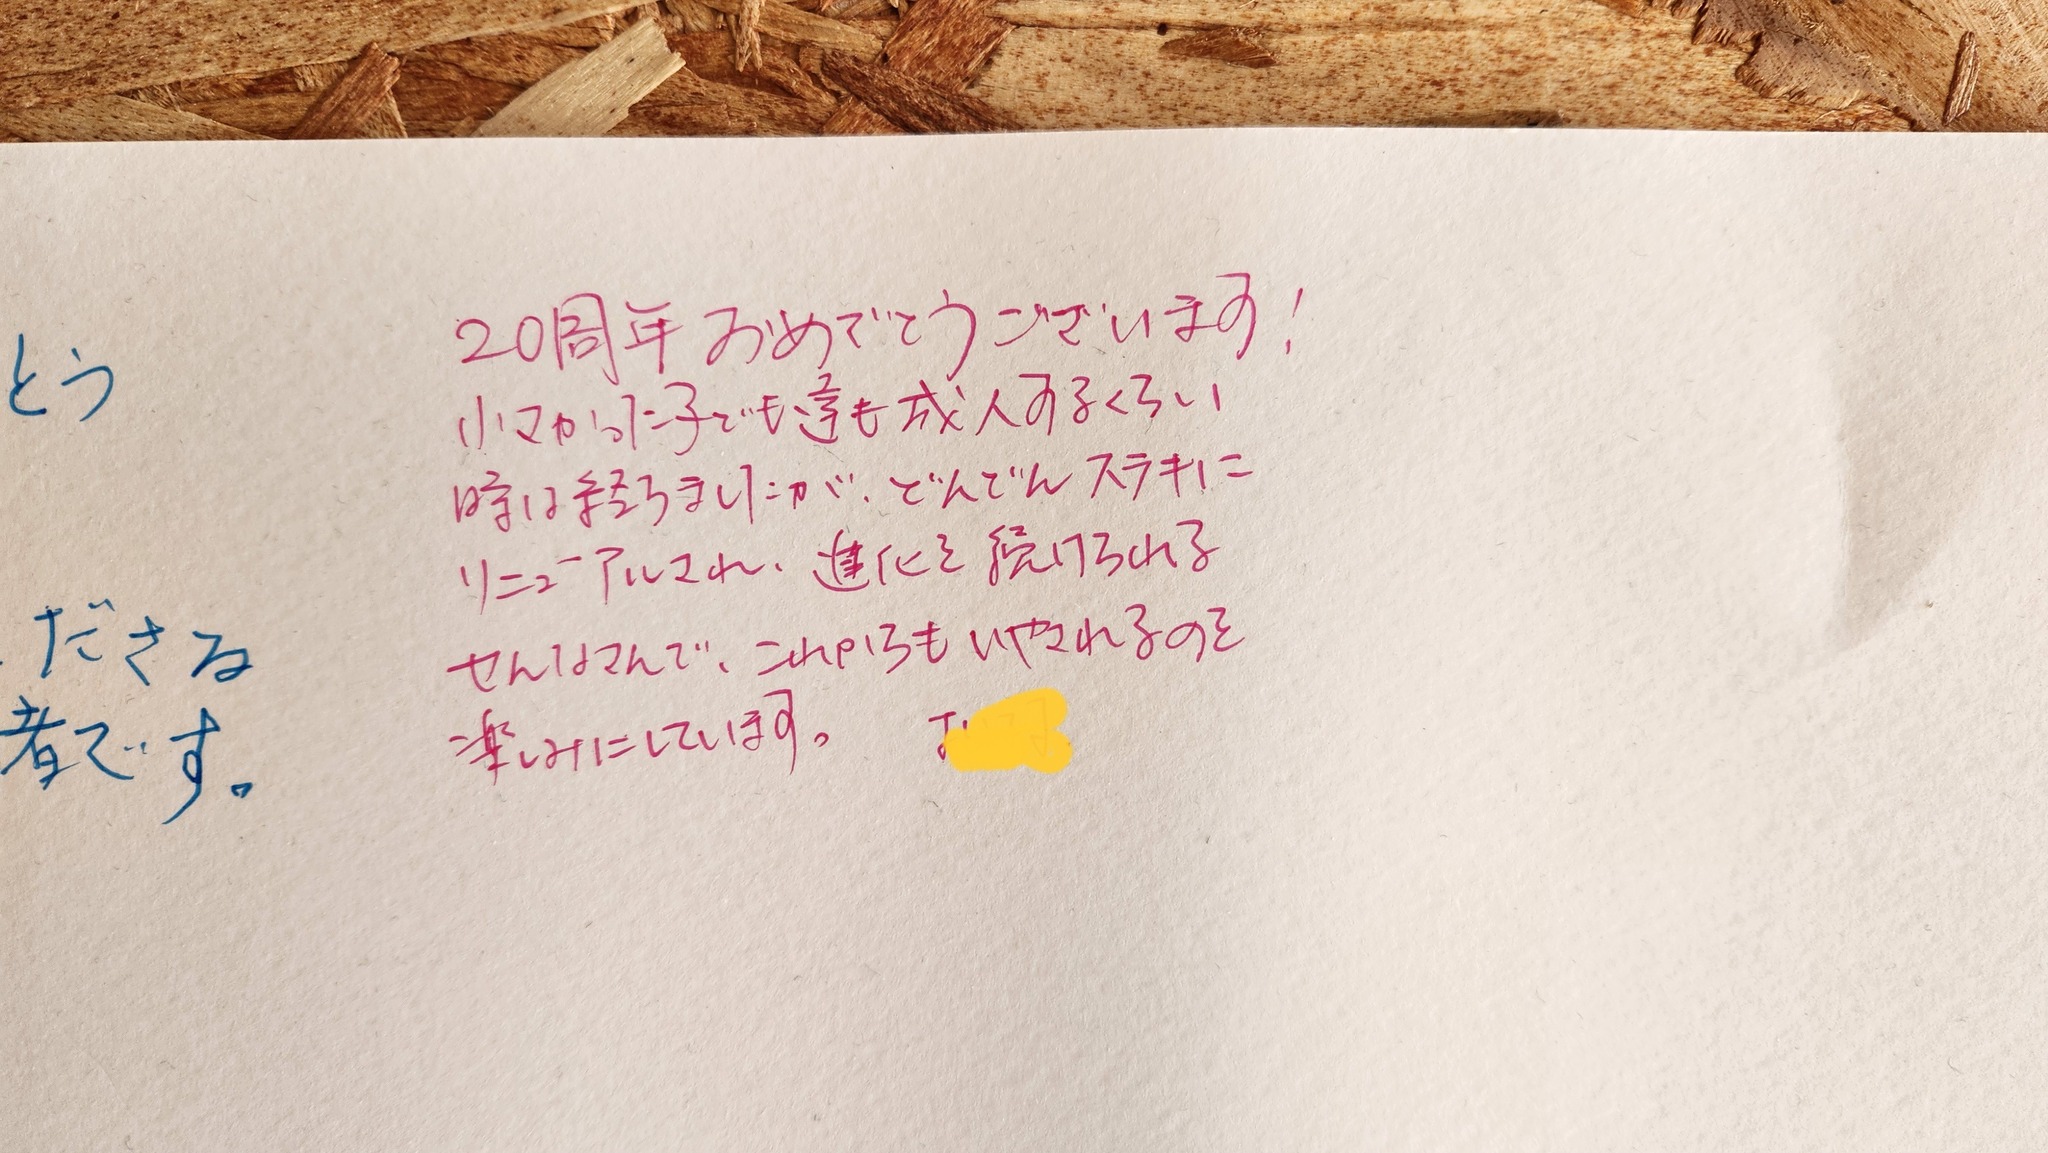 とう
ださる
者です。
20周年おめでとうございます!
小さかった子ども達も成人するくらい
時は経ちましたが、どんどんステキに
リニューアルされ、進化を続けられる
せんなさんで、これからもいやされるのを
楽しみにしています。